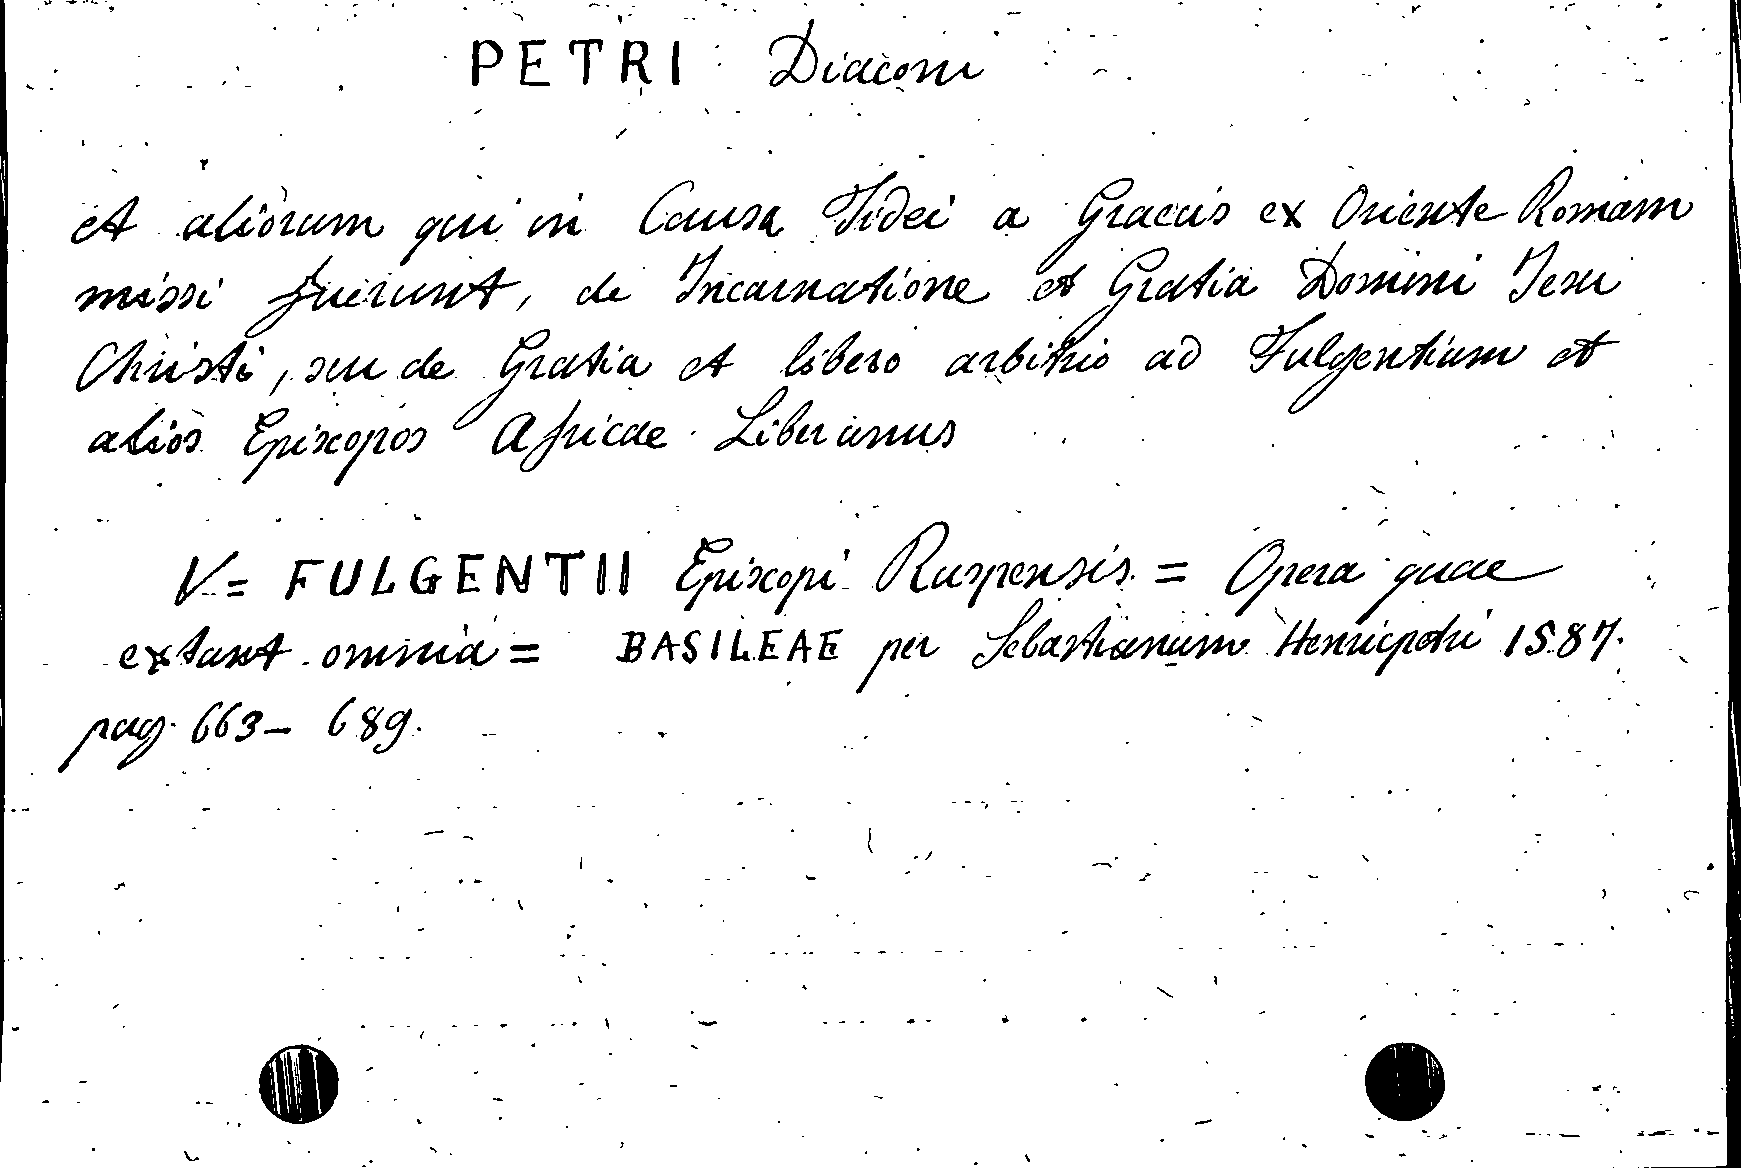 PETRI Diaconi
et aliorum qui in Causa Fidei a Graecis ex Oriente Romam
missi fuerunt, de Incarnatione et Gratia Domini Iesu
Christi, seu de Gratia et libero arbitrio ad Fulgentium et
alios Episcopos Africae Liber unus
V= FULGENTII Episcopi Ruspensis = Opera quae
extant omnia = BASILEAE per Sebastianum Henricpetri 1587.
pag. 663- 689.